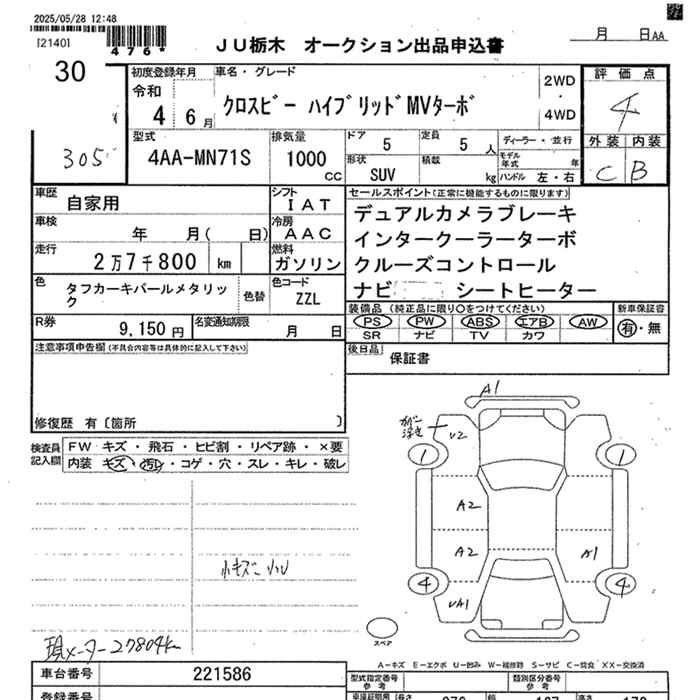 2025/05/28 12:48
[2140]
*476*
JU栃木 オークション出品申込書
月 日AA
30
305
初度登録年月
令和
4 6月
車名・グレード
クロスビー ハイブリッドMVターボ
2WD
4WD
評価点
4
外装 内装
C B
型式
4AA-MN71S
排気量
1000
CC
ドア
5
定員
5人
形状
SUV
積載
kg
ディーラー・並行
モデル年式 年
ハンドル 左・右
車歴
自家用
シフト
IAT
車検
年 月( 日)
冷房
AAC
走行
2万7千800 km
燃料
ガソリン
色
タフカーキパールメタリック
色替
色コード
ZZL
R券
9,150円
名変通知期限
月 日
セールスポイント(正常に機能するものに限ります)
デュアルカメラブレーキ
インタークーラーターボ
クルーズコントロール
ナビ シートヒーター
装備品 (純正品に限り○をつけてください)
PS PW ABS エアB AW
SR ナビ TV カワ
新車保証書
有・無
後日品
保証書
注意事項申告欄(不具合内容等は具体的に記入して下さい)
修復歴 有〔箇所 〕
検査員
記入欄
FW キズ・飛石・ヒビ割・リペア跡・×要
内装 キズ・汚レ・コゲ・穴・スレ・キレ・破レ
小キズ 小U
現メーター27804km
A1
カバー浮き
U2
1
1
A2
A2
A1
4
4
UA1
スペア
A-キズ E-エクボ U-凹み W-補修跡 S-サビ C-腐食 XX-交換済
車台番号
221586
登録番号
型式指定番号
参考
類別区分番号
参考
長さ
幅
高さ